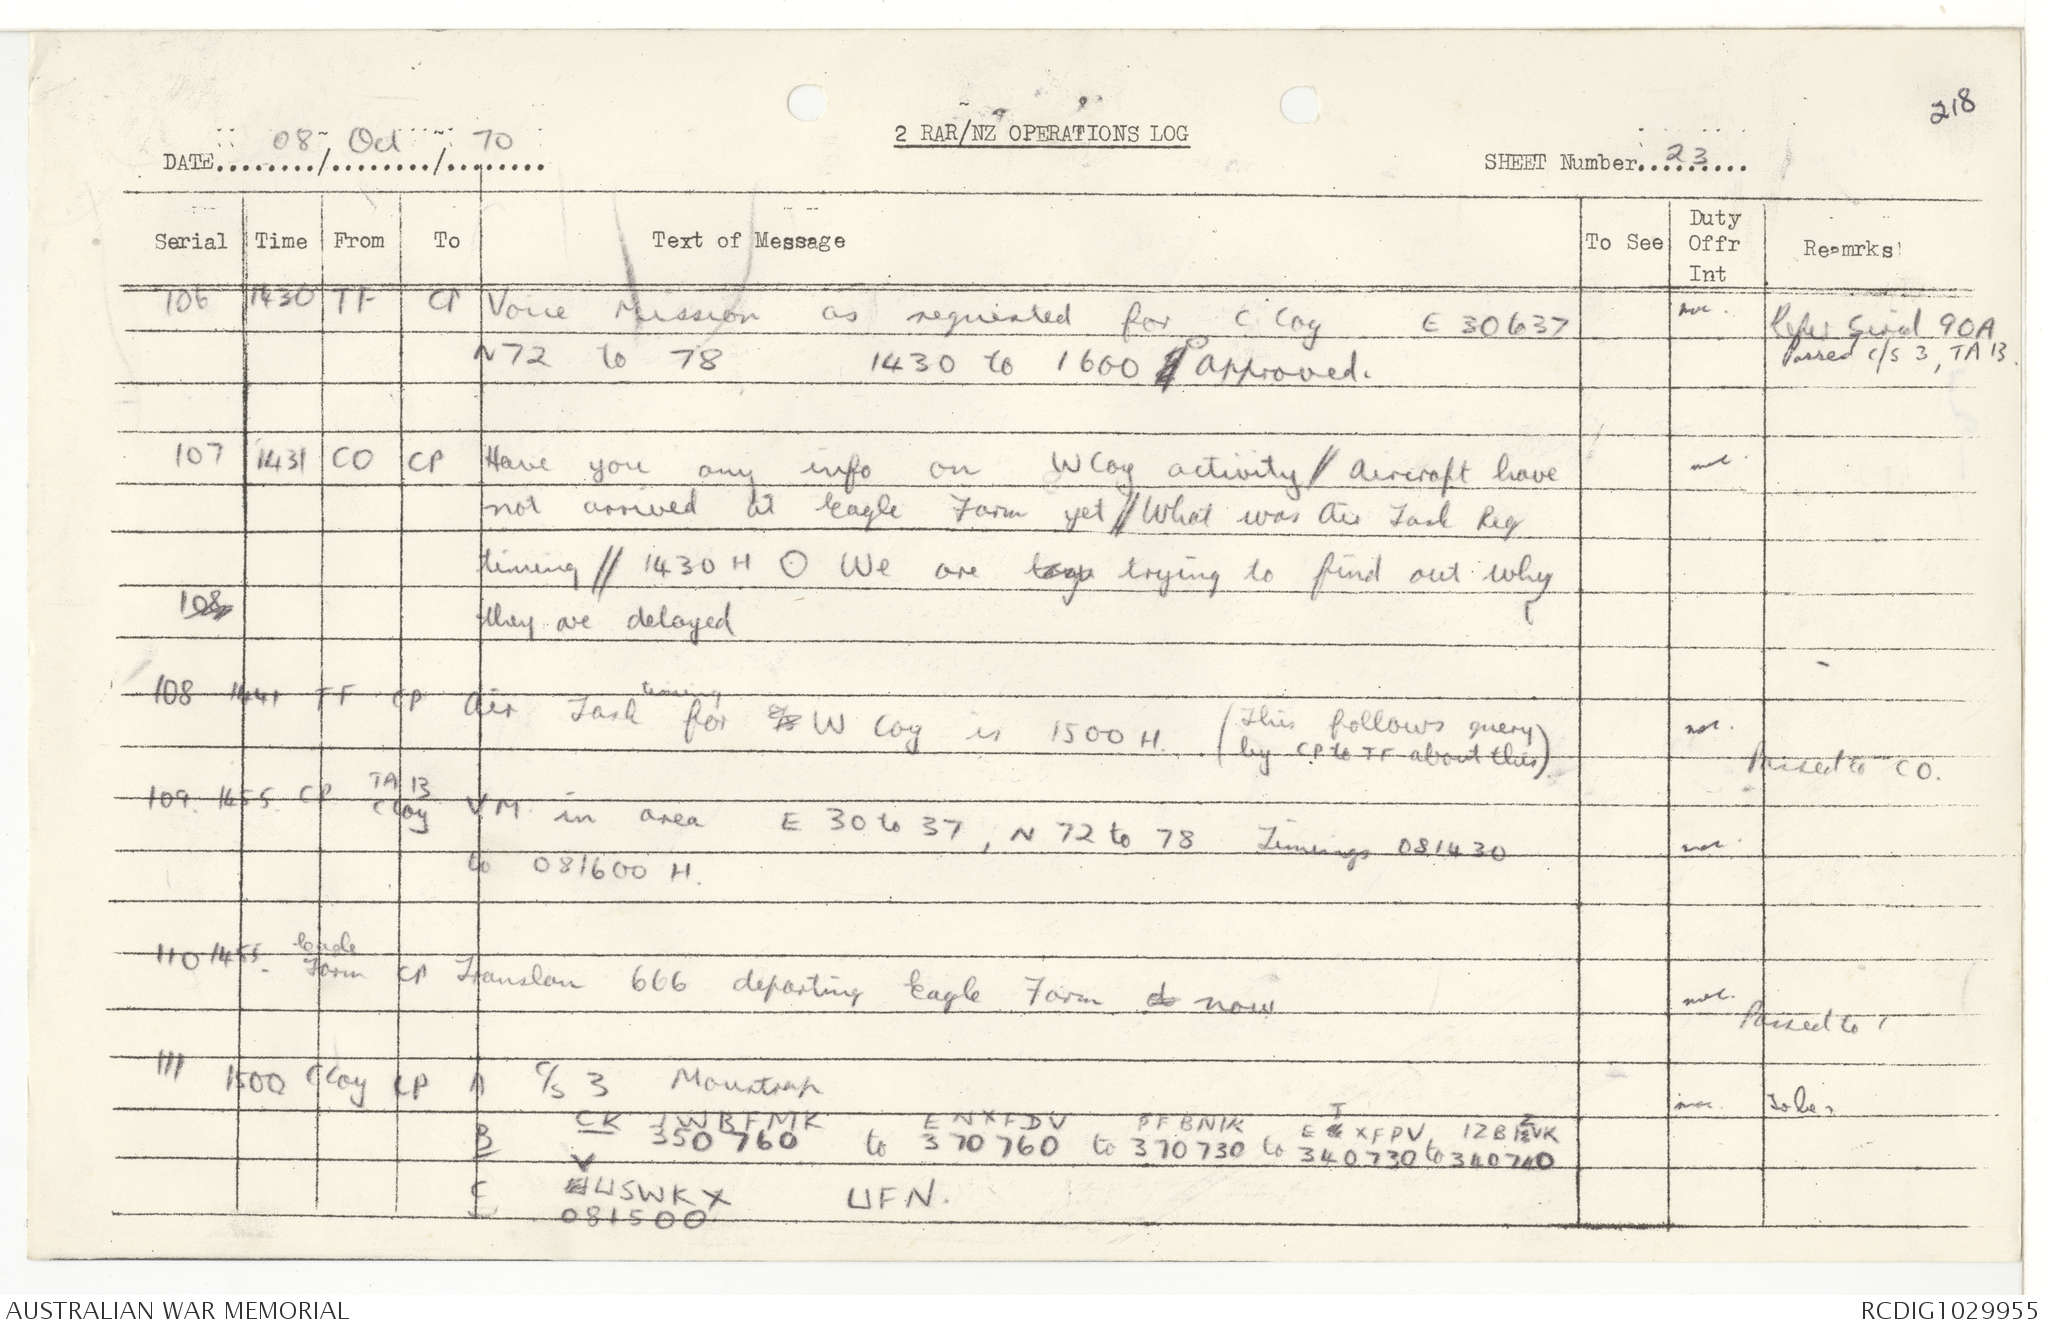 218
2 RAR/NZ OPERATIONS LOG
DATE 08 / Oct / 70
SHEET Number 23
Serial Time From To Text of Message To See Duty Offr Int Remrks
106 1430 TF CP Voice Mission as requested for C Coy E 30 to 37
N72 to 78 1430 to 1600 // Approved.
Refer Serial 90A
Passed c/s 3, TA 13.
107 1431 CO CP Have you any info on W Coy activity // Aircraft have
not arrived at Eagle Farm yet // What was Air Task Req
timing // 1430 H O We are trying to find out why
108
they are delayed
108 1441 TF CP Air Task timing for W Coy is 1500 H. (This follows query
by CP to TF about this)
Passed to CO.
109. 1455. CP TA 13
C Coy VM in area E 30 to 37, N 72 to 78 Timings 081430
to 081600 H.
110 1455. Eagle
Farm CP Translan 666 departing Eagle Farm now
Passed to 1
111 1500 C Coy CP A C/S 3 Mousetrap
B CK IWBFMK ENXFDV PFBNIK E T XFPV IZBIZVK
350760 to 370760 to 370730 to 340730 to 340740
C V USWKX UFN.
081500
AUSTRALIAN WAR MEMORIAL
RCDIG1029955